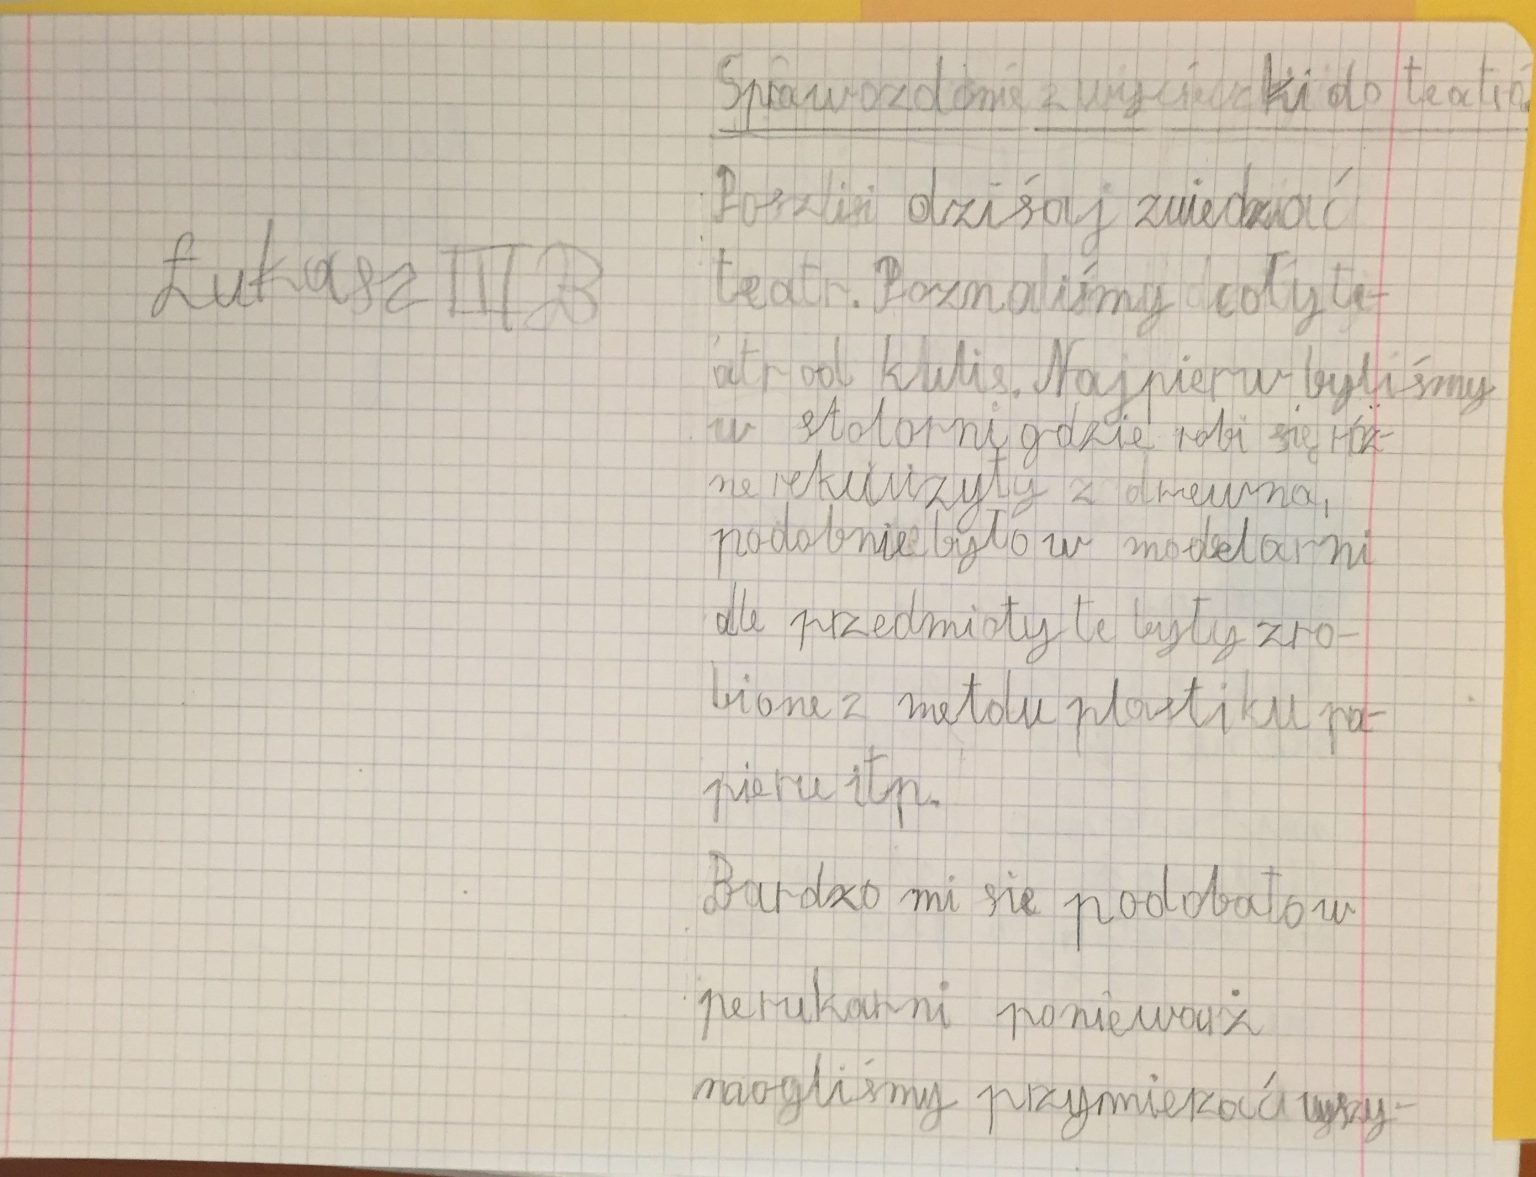 Sprawozdanie z wycieczki do teatru.
Poszliśmy dzisiaj zwiedzać
Łukasz III B
teatr. Poznaliśmy cały te-
atr od kulis. Najpierw byliśmy
w stolarni gdzie robi się róż-
ne rekwizyty z drewna,
podobnie było w modelarni
ale przedmioty te były zro-
bione z metalu plastiku pa-
pieru itp.
Bardzo mi się podobało w
perukarni ponieważ
mogliśmy przymierzać wszy-